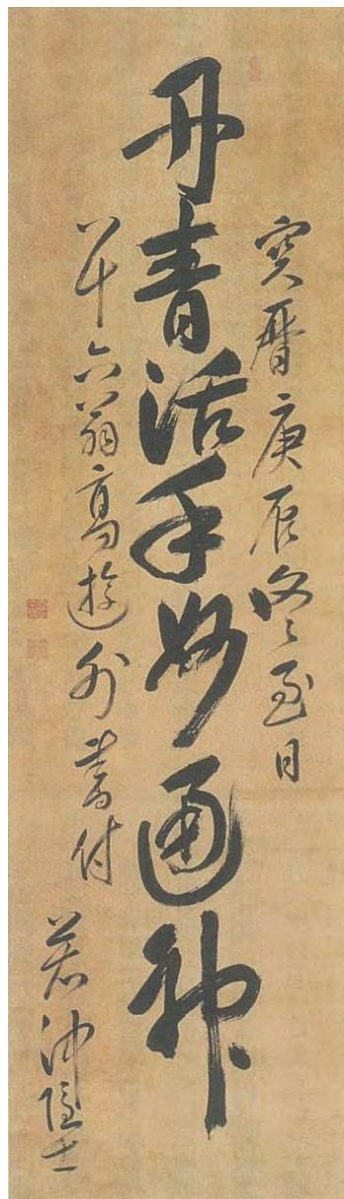 寳暦庚辰冬至日
丹青活手妙通神
八十六翁高遊外書付
若冲隠士